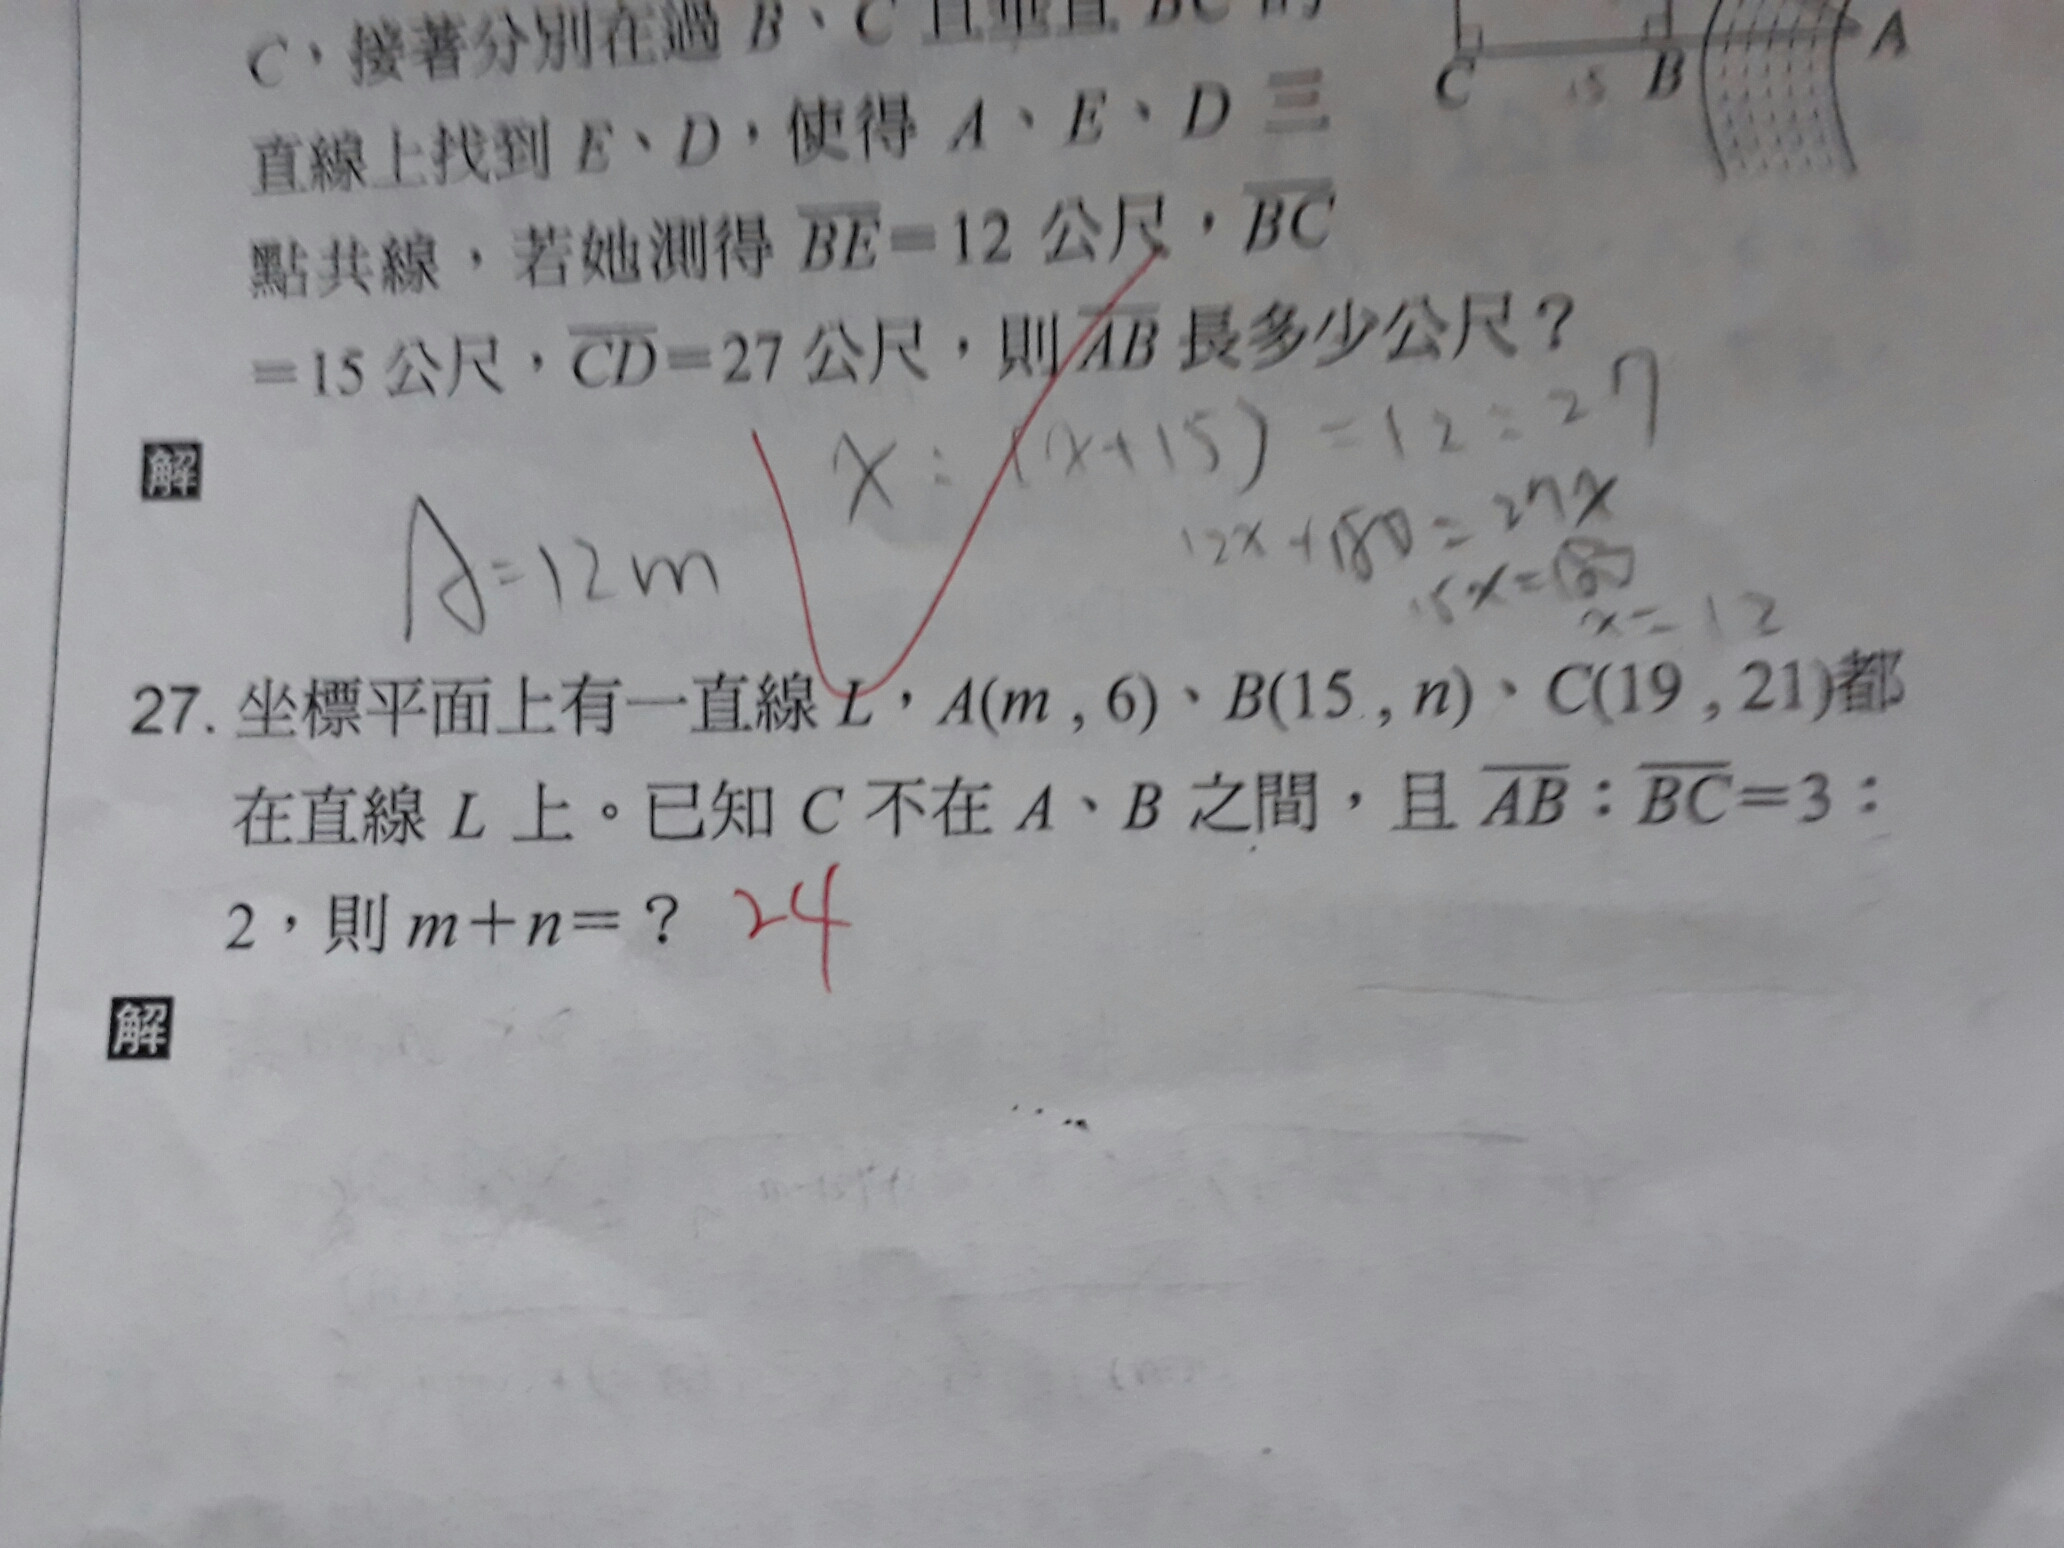 C，接著分別在過 B、C 且垂直 BC 的
直線上找到 E、D，使得 A、E、D 三
點共線，若她測得 BE=12 公尺，BC
=15 公尺，CD=27 公尺，則 AB 長多少公尺？
C 15 B A
解
x:(x+15)=12:27
12x+180=27x
15x=180
x=12
A=12m
27. 坐標平面上有一直線 L，A(m , 6)、B(15 , n)、C(19 , 21)都
在直線 L 上。已知 C 不在 A、B 之間，且 AB：BC=3：
2，則 m+n=？ 24
解